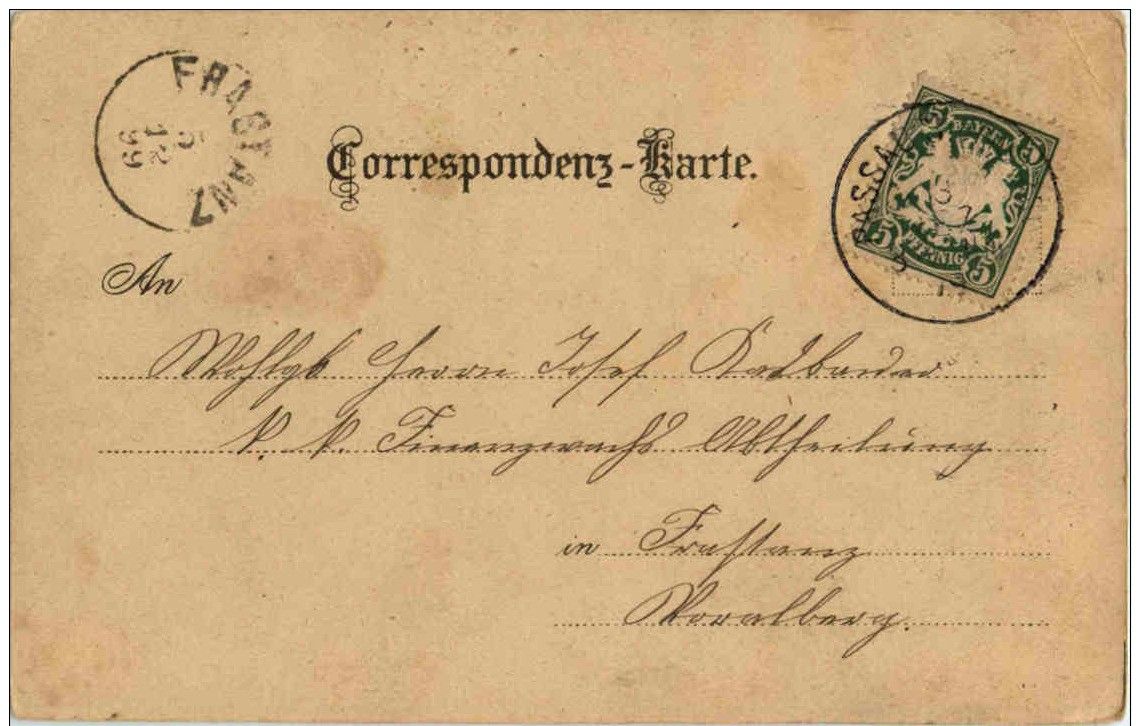 FRASTANZ
5
12
99
Correspondenz-Karte.
PASSAU
3
5
BAYERN
5
5
PFENNIG
5
An
Wohlgb Herrn Josef
k. k. Finanzwachs Abtheilung
in Frastanz
Voralberg.